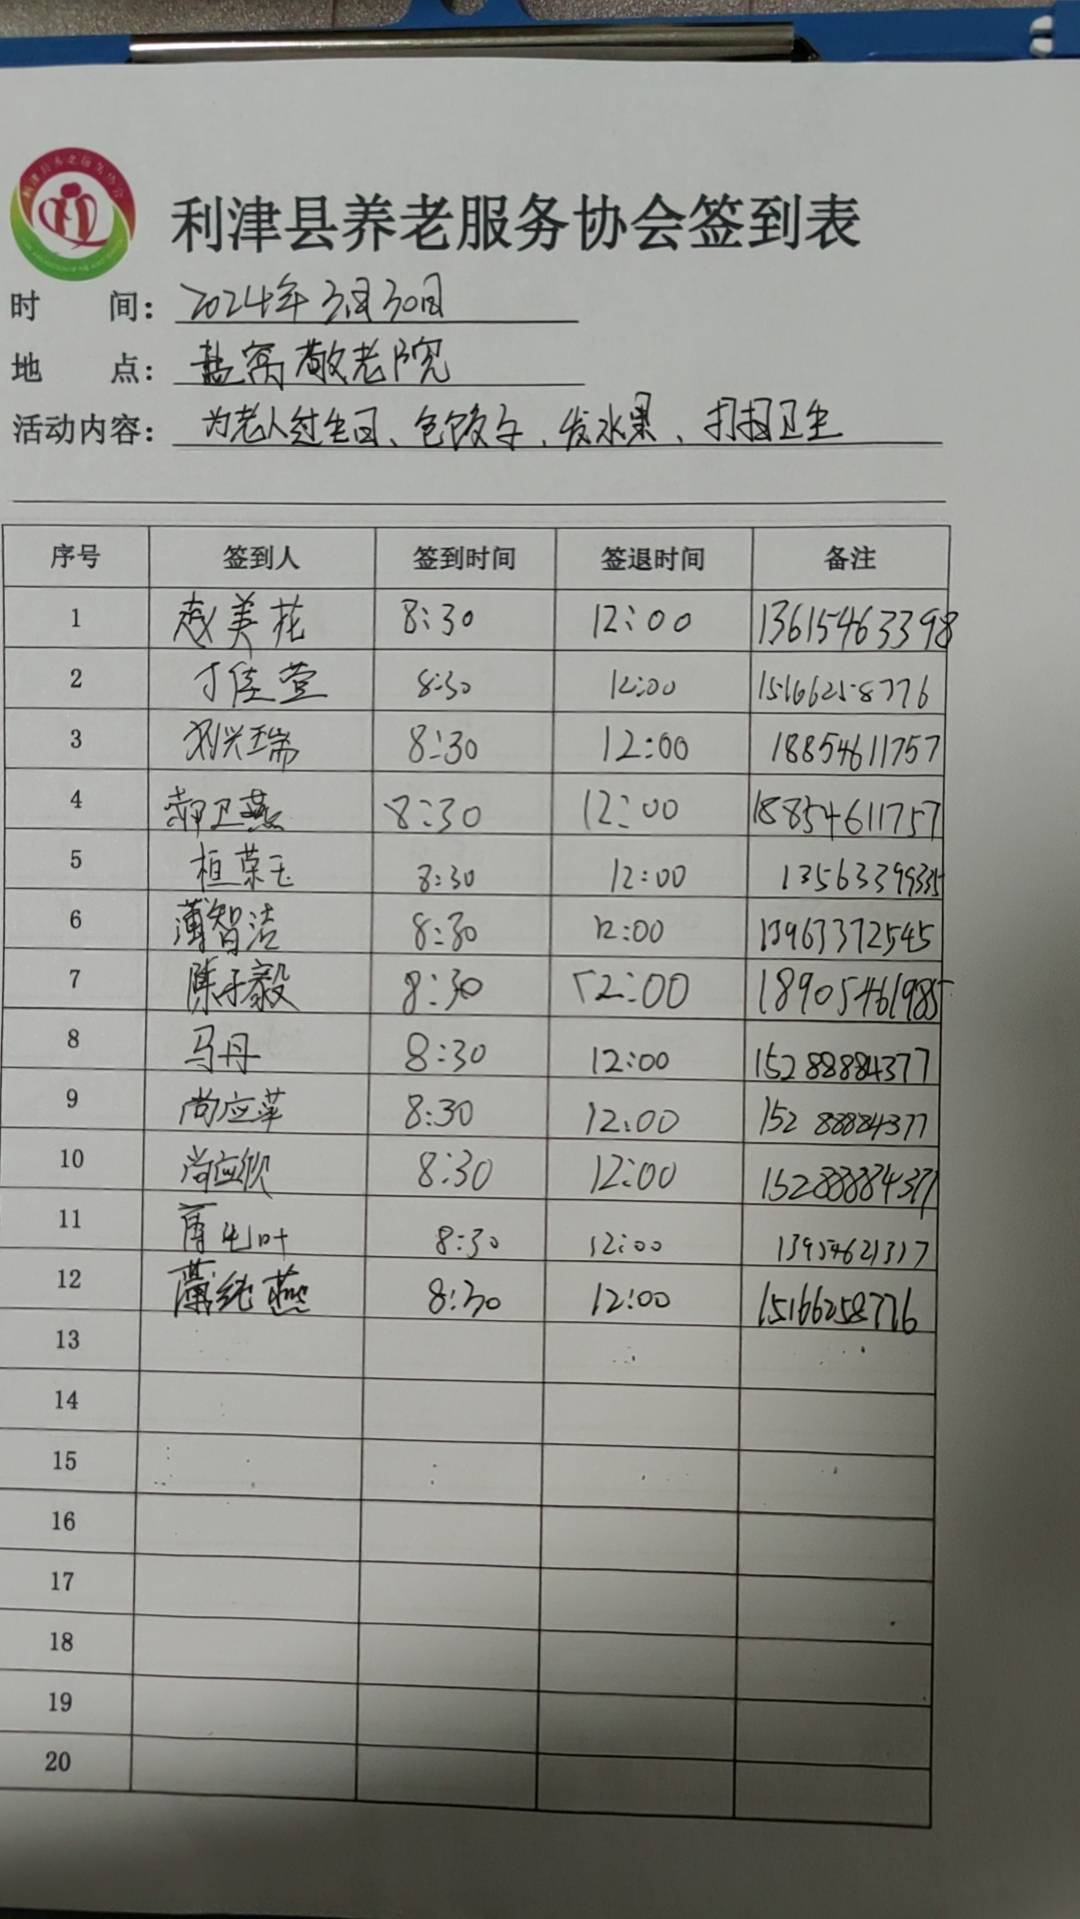 利津县养老服务协会签到表
时 间: 2024年3月30日
地 点: 盐窝敬老院
活动内容: 为老人过生日、包饺子、发水果、打扫卫生
序号 签到人 签到时间 签退时间 备注
1 赵美花 8:30 12:00 13615463398
2 丁佳萱 8:30 12:00 15166258776
3 刘兴瑞 8:30 12:00 18854611757
4 郭卫燕 8:30 12:00 18854611757
5 桓荣玉 8:30 12:00
6 薄智洁 8:30 12:00 13963372545
7 陈子毅 8:30 12:00 18905461985
8 马丹 8:30 12:00 15288884377
9 尚应苹 8:30 12:00 15288884377
10 尚应欣 8:30 12:00 15288884377
11 8:30 12:00 13954621317
12 薄纯燕 8:30 12:00 15166258776
13
14
15
16
17
18
19
20